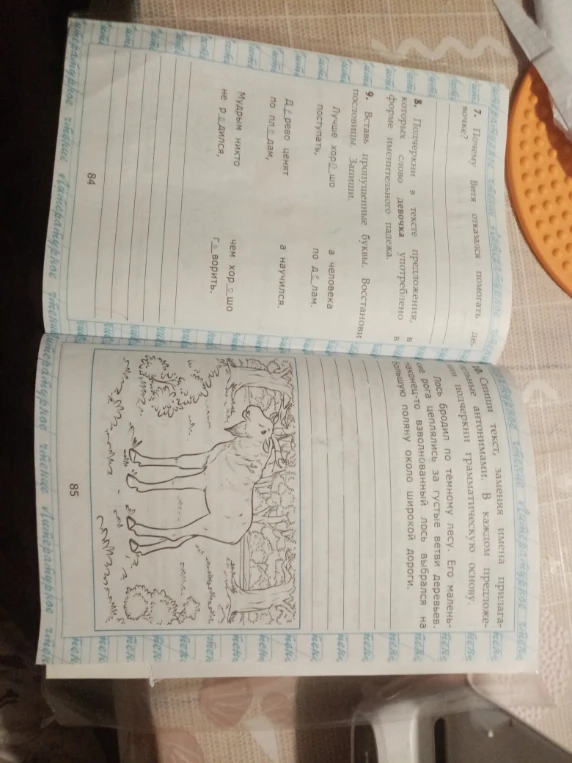 7. Почему Витя отказался помогать де-
вочке?
8. Подчеркни в тексте предложения, в
которых слово девочка употреблено в
форме именительного падежа.
9. Вставь пропущенные буквы. Восстанови
пословицы. Запиши.
Лучше хорошо
поступать,
а человека
по делам.
Дерево ценят
по плодам,
а научился.
Мудрым никто
не родился,
чем хорошо
говорить.
84
Спиши текст, заменяя имена прилага-
тельные антонимами. В каждом предложе-
нии подчеркни грамматическую основу.
Лось бродил по тёмному лесу. Его малень-
кие рога цеплялись за густые ветви деревьев.
Наконец-то взволнованный лось выбрался на
большую поляну около широкой дороги.
85
Литературное чтение